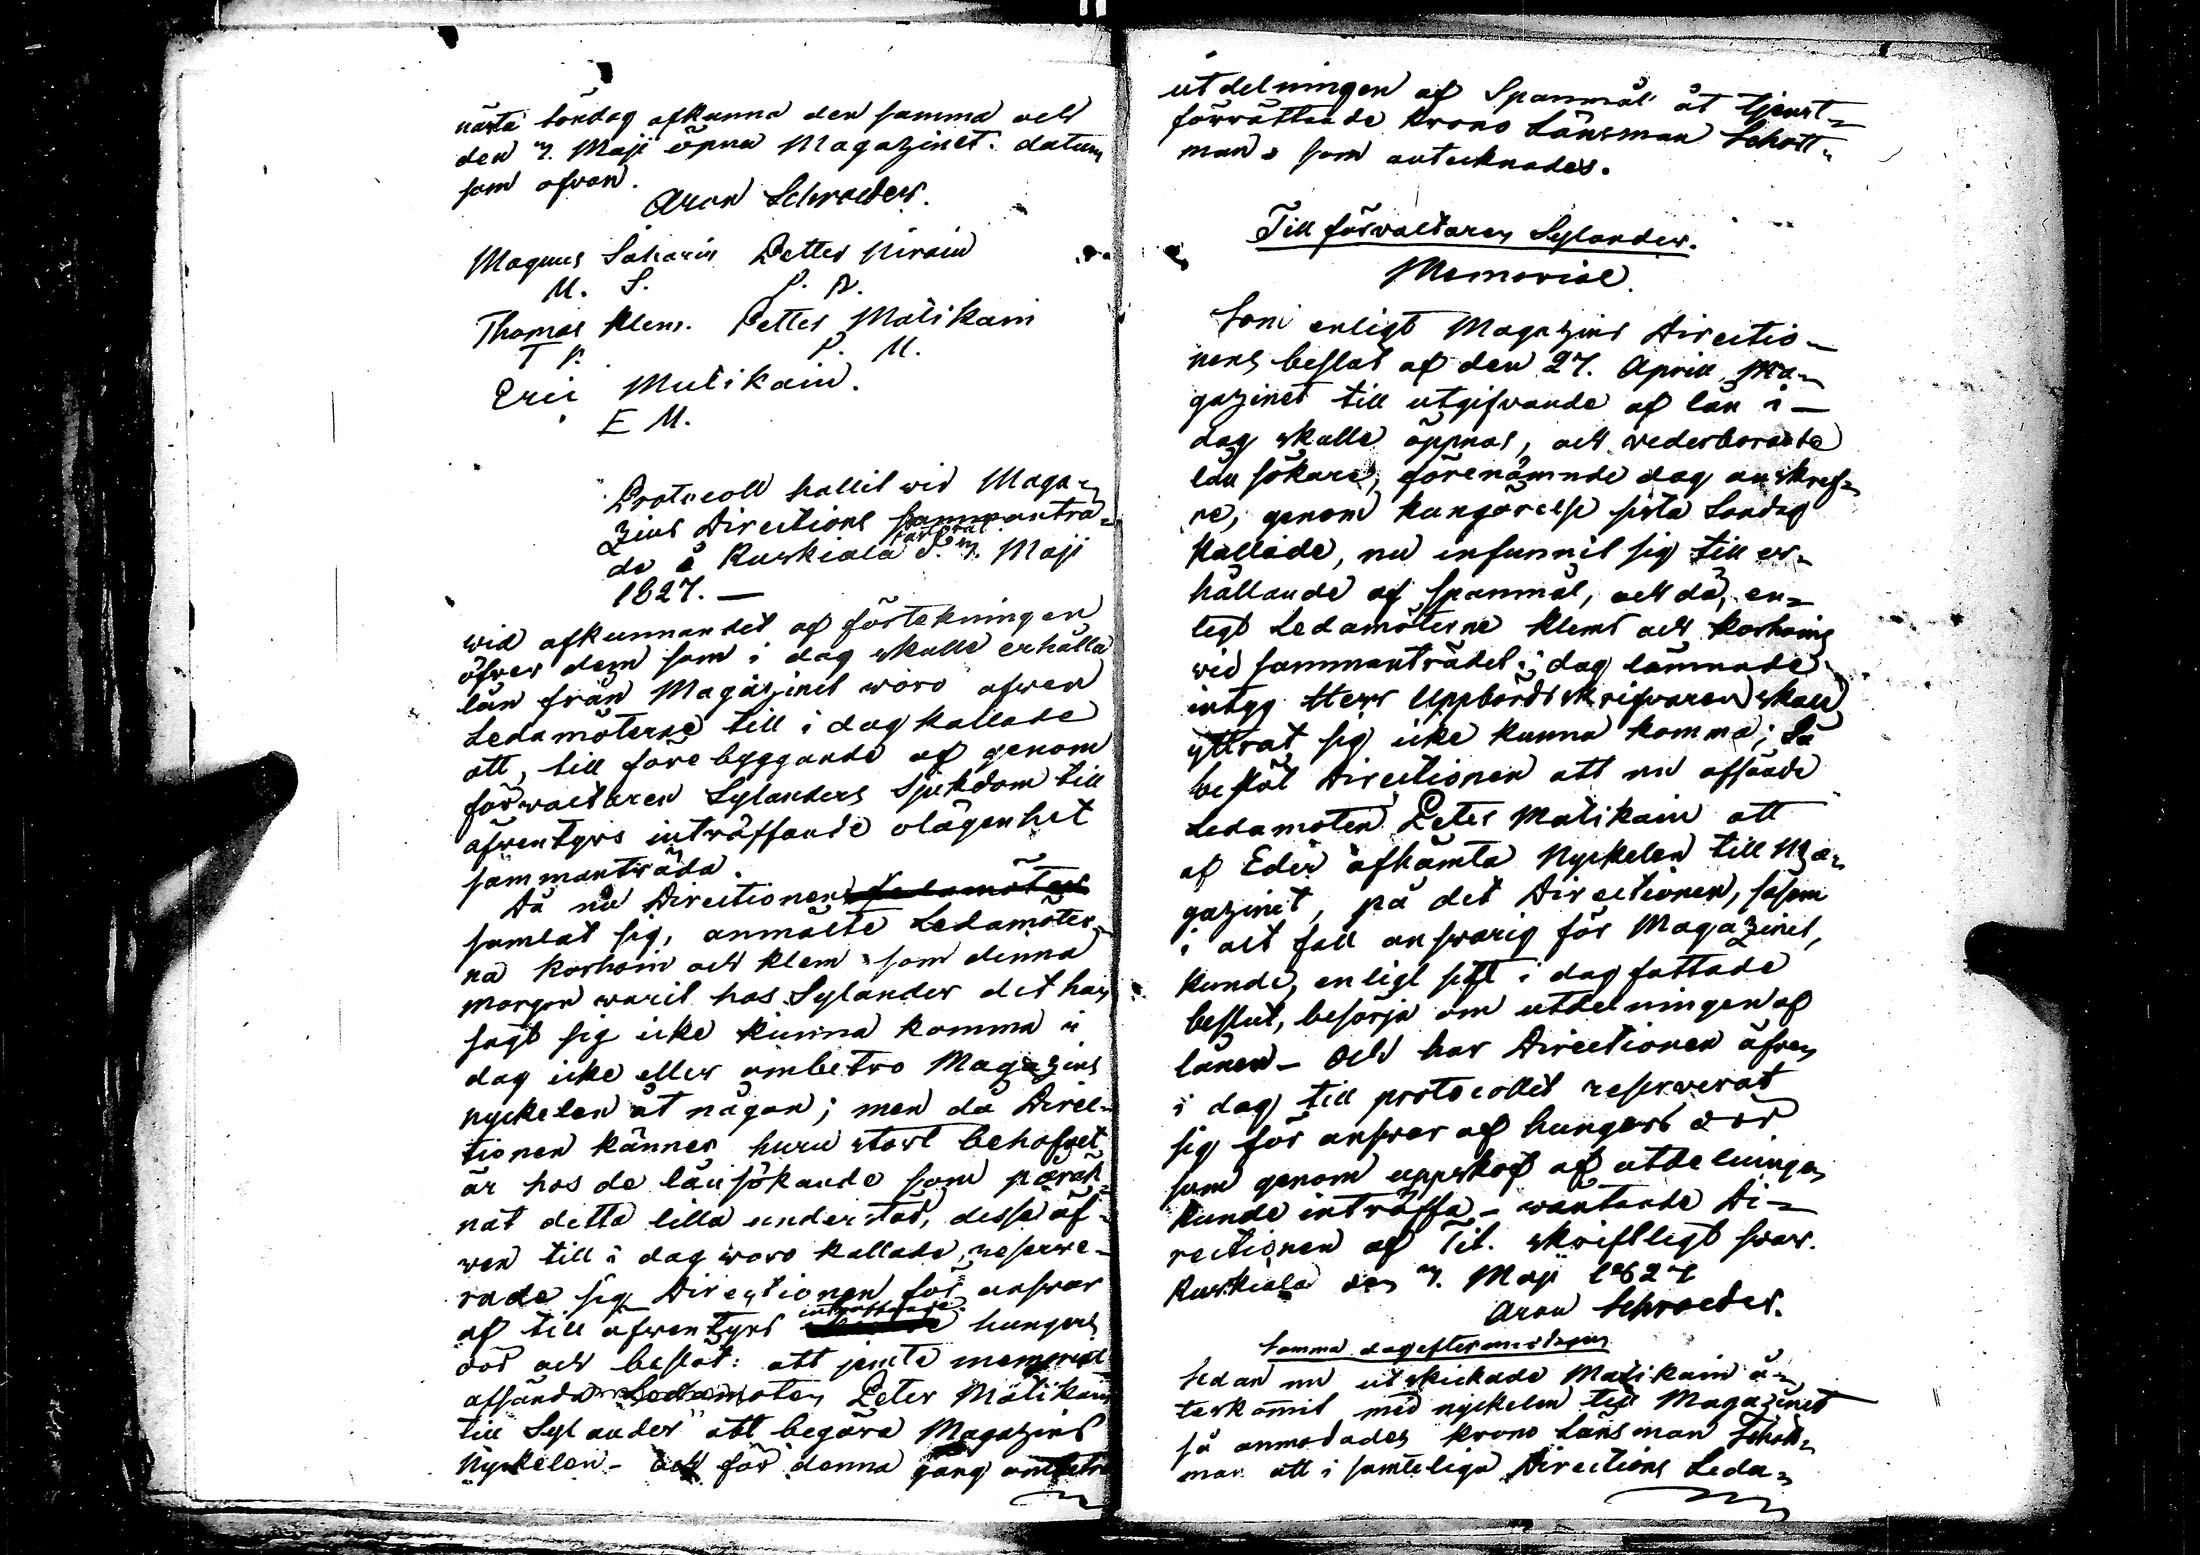 nästa Söndag afkunna den samma och
den 7. Maji öpna Magazinet. datum
som ofvan.
Aron Schroeder.
Magnus Saharin Petter Hirain
M. S. P. H.
Thomas Klem. Petter Matikain
T K. P. M.
Eric Mutikain.
E M.
Protocoll hallit wid Maga-
zins Directions sammanträ-
de å Ruskiala d. 7. Maji
1827. —
wid afkunnandet af förtekningen
öfver dem som i dag skulle erhålla
lån från Magazinet woro afwen
Ledamöterne till i dag kallade
att, till förebyggande af genom
förwaltaren Sylanders Sjukdom till
äfwentyrs inträffande olägenhet
sammanträda.
Då nu Directionen Ledamöter
samlat sig, anmälte Ledamöter-
na Korhoin och Klem som denna
morgon warit hos Sylander det han
sagt sig icke kunna komma i
dag icke eller ombetro Magazins
nyckelen åt någon; men då Direc-
tionen känner huru stort behofvet
är hos de lånsökande som påräk-
nat detta lilla understöd, desse äf-
wen till i dag woro kallade, reserve-
rade sig Directionen för answar
af till äfwentyrs inträffande hungers
död och beslöt: att jemte memorial
afsända Ledamoten Peter Mätikain
till Sylander att begära Magazins
Nyckelen - och för denna gång ombetro
utdelningen af Spanmål åt tjenst-
förrättande Krono Länsman Schott-
man som antecknades.
Till förwaltaren Sylander.
Memorial.
Som enligt Magazins Directio-
nens beslut af den 27. April Ma-
gazinet till utgifvande af lån i-
dag skulle öppnas, och wederborande
lån sökare, förenämnde dag anskref-
ne, genom kungörelse sista Sondag
kallade, nu infunnit sig till er-
hållande af spanmål, och då, en-
ligt Ledamöterne Klems och Korhoins
wid sammanträdet i dag lämnade
intyg Herr Uppbördsskrifvaren skall
yttrat sig icke kunna komma; Så
beslöt Directionen att nu afsände
Ledamoten Peter Matikain att
af Eder afhämta Nyckelen till Ma-
gazinet, på det Directionen, såsom
i alt fall answarig för Magazinet,
kunde, enligt sitt i dag fattade
beslut, besörja om utdelningen af
lånen - Och har Directionen äfven
i dag till protocollet reserverat
sig för answar af hungers död
som genom uppskof af utdelningen
kunde inträffa - wäntande Di-
rectionen af Tit. skriftligt swar.
Ruskiala den 7. Maji 1827
Aron Schroeder.
Samma dag eftermiddagen
Sedan nu utskickade Matikain å-
terkommit med nyckelen till Magazinet
så anmodades Krono Länsman Schott-
man att i samteliga Directions Leda-